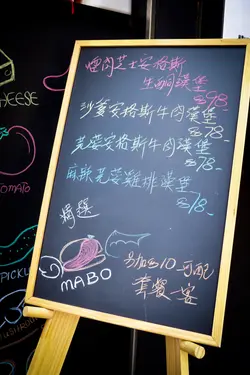 煙肉芝士安格斯
生酮漢堡
$98.-
沙爹安格斯牛肉漢堡
$78.-
芫荽安格斯牛肉漢堡
$78.-
麻辣芫荽雞排漢堡
$78.-
另加$10可配
套餐一客
MABO
CHEESE
TOMATO
PICKL
MUSHROO